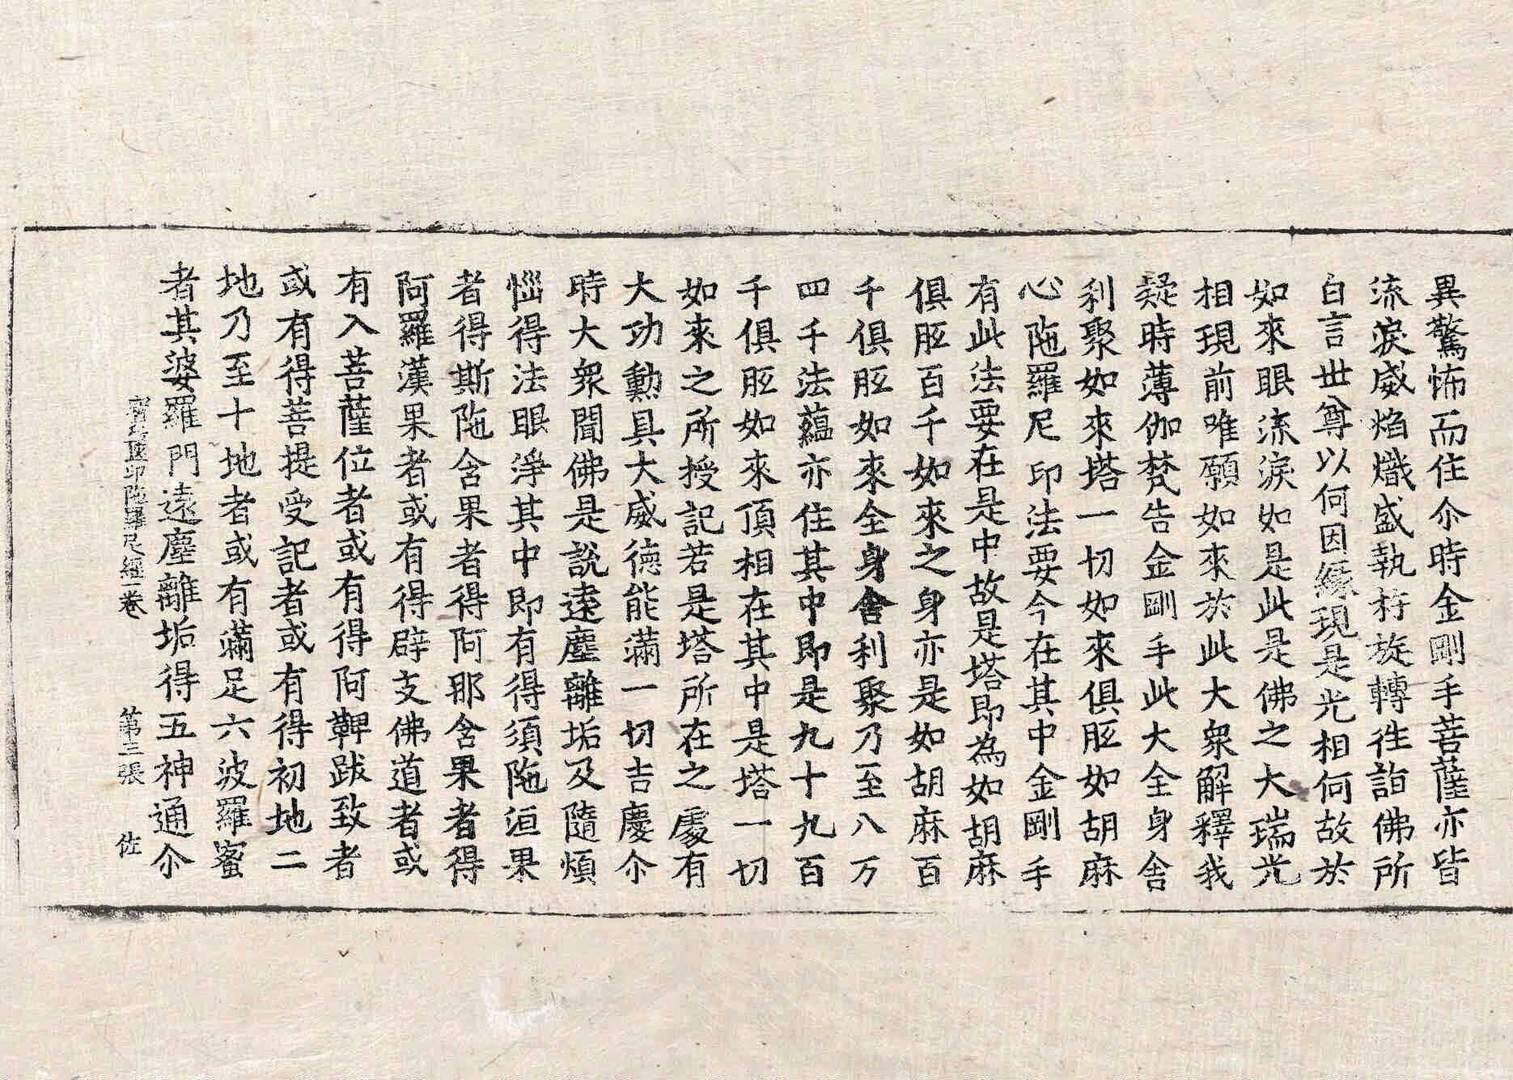 異驚怖而住尒時金剛手菩薩亦皆
流淚威焰熾盛執杵旋轉往詣佛所
白言世尊以何因緣現是光相何故於
如來眼流淚如是此是佛之大瑞光
相現前唯願如來於此大衆解釋我
疑時薄伽梵告金剛手此大全身舍
利聚如來塔一切如來俱胝如胡麻
心陁羅尼印法要今在其中金剛手
有此法要在是中故是塔即為如胡麻
俱胝百千如來之身亦是如胡麻百
千俱胝如來全身舍利聚乃至八万
四千法蘊亦住其中即是九十九百
千俱胝如來頂相在其中是塔一切
如來之所授記若是塔所在之處有
大功勳具大威德能滿一切吉慶尒
時大衆聞佛是說遠塵離垢及隨煩
惱得法眼淨其中即有得須陁洹果
者得斯陁含果者得阿那含果者得
阿羅漢果者或有得辟支佛道者或
有入菩薩位者或有得阿鞞跋致者
或有得菩提受記者或有得初地二
地乃至十地者或有滿足六波羅蜜
者其婆羅門遠塵離垢得五神通尒
寶篋印陁羅尼經一卷 第三張 佐